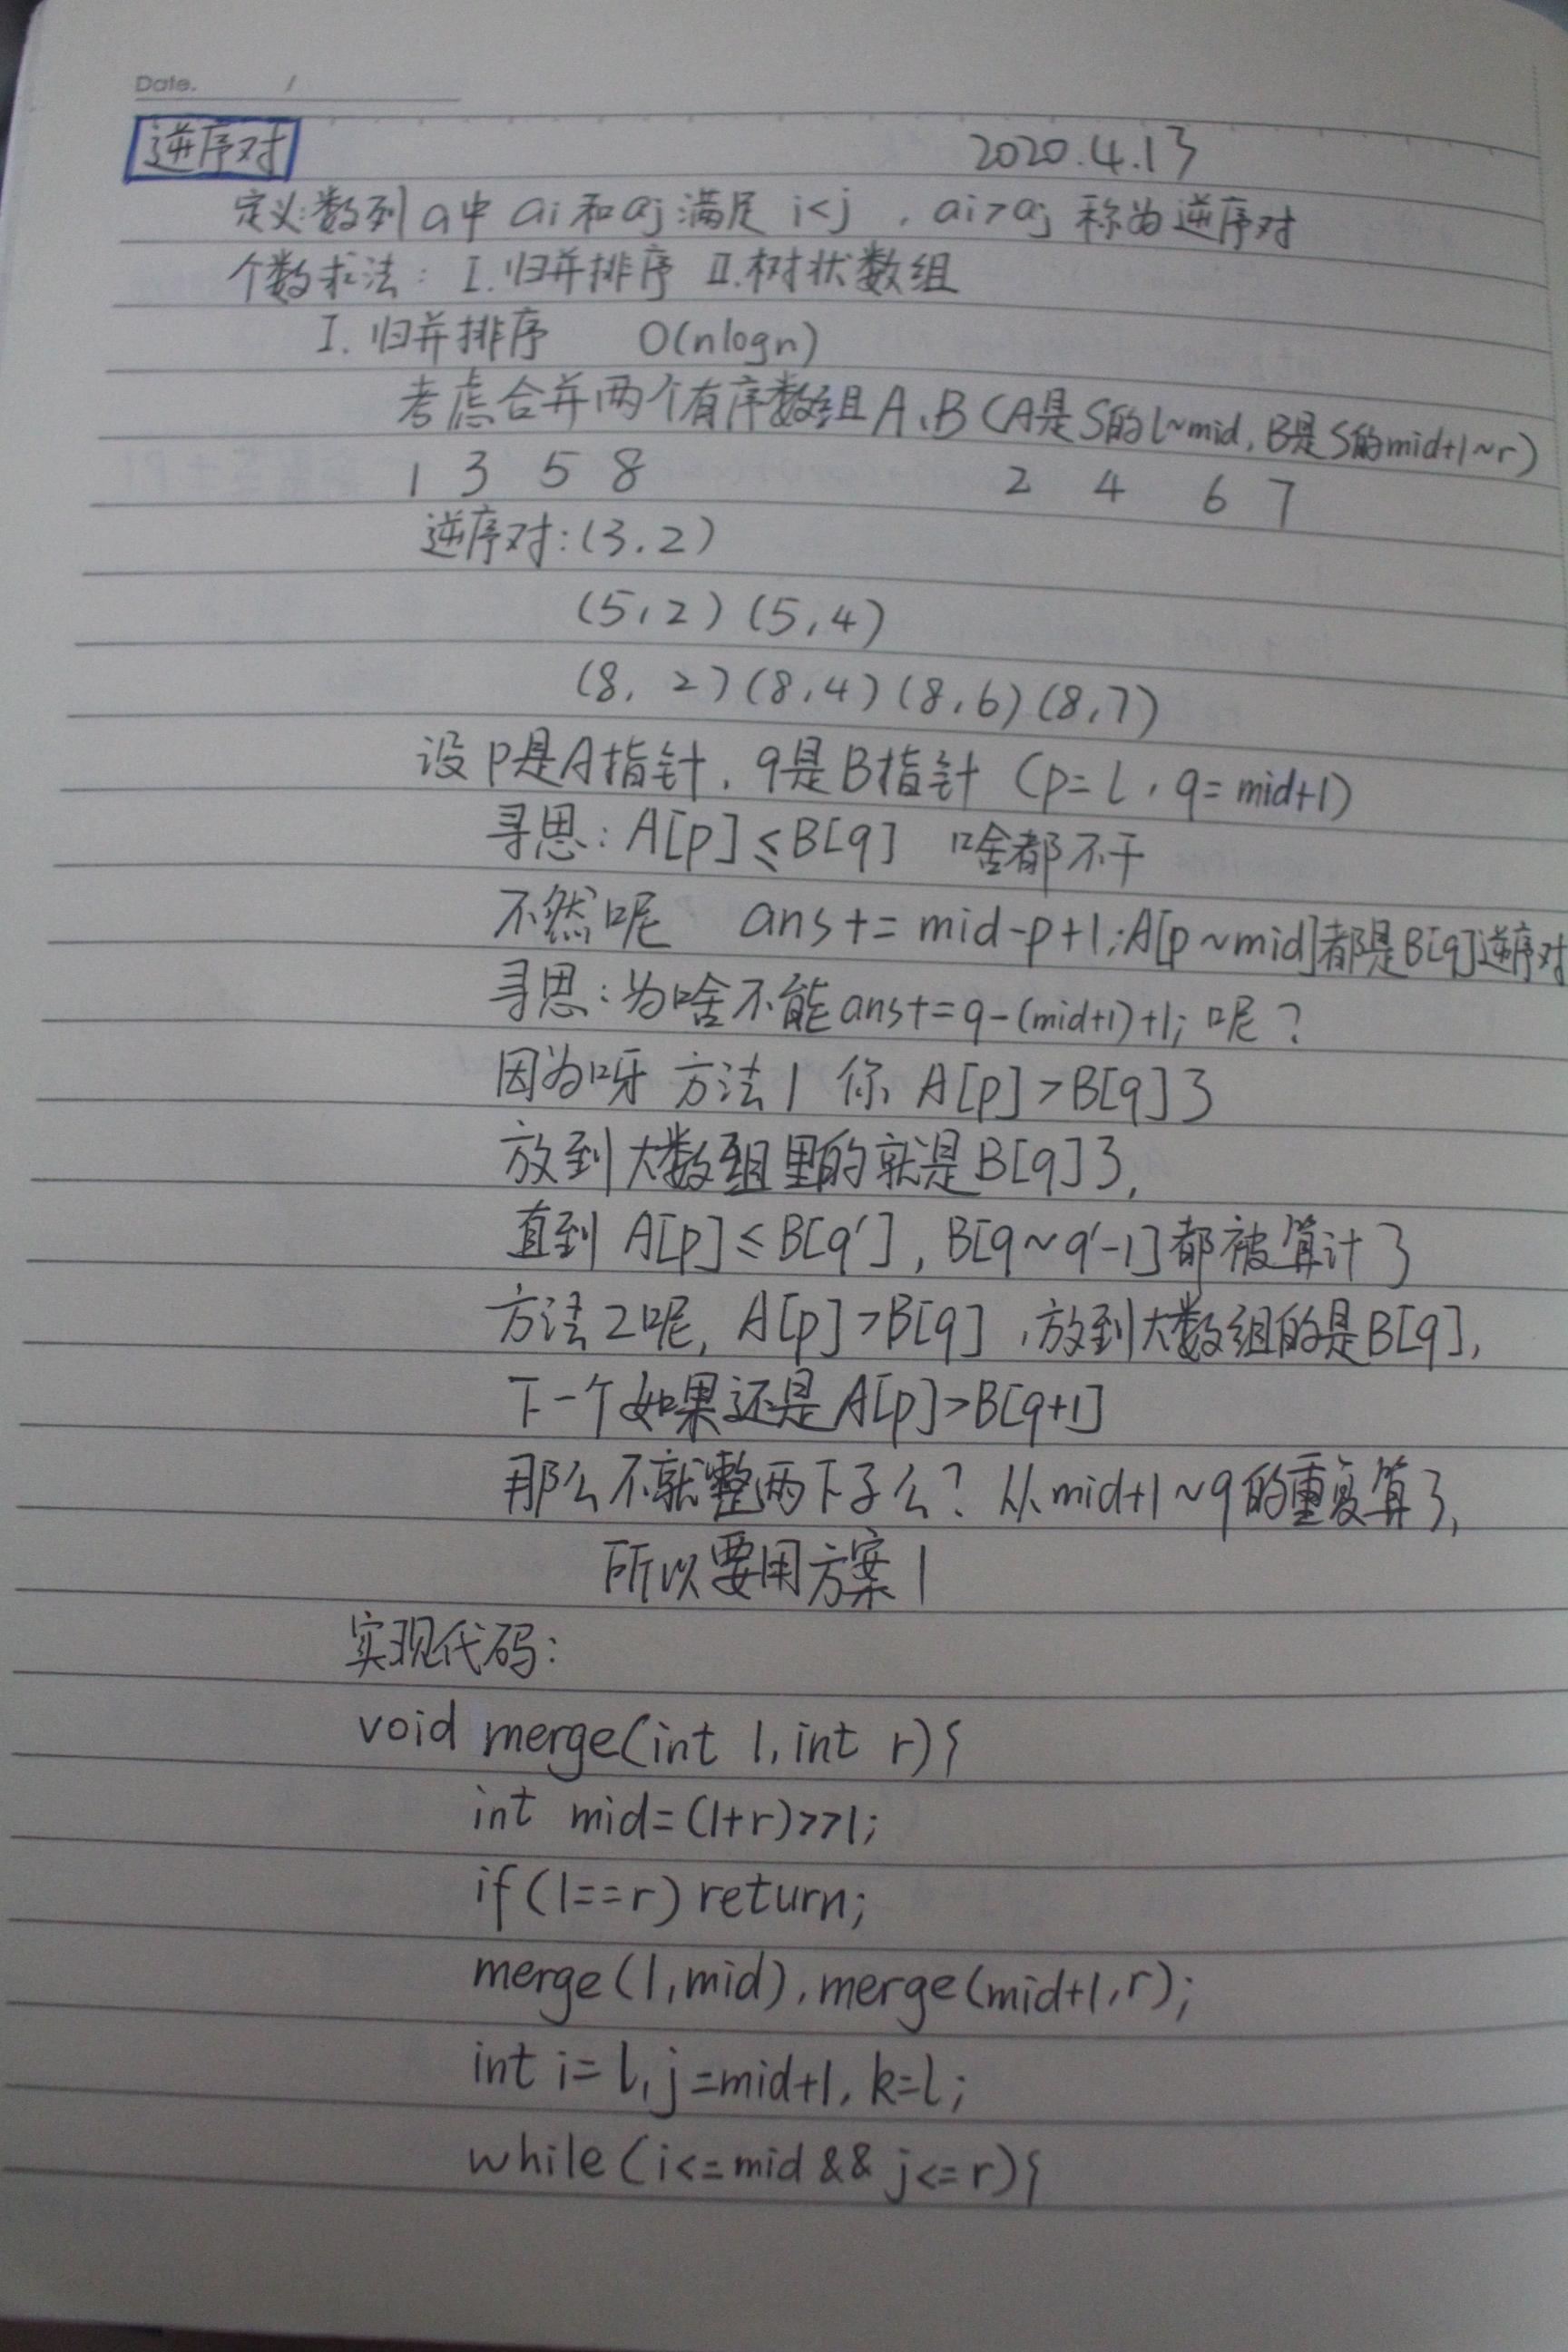 Date. /
逆序对 2020.4.13
定义:数列a中 ai和aj满足 i<j , ai>aj 称为逆序对
个数求法: I.归并排序 II.树状数组
I. 归并排序 O(nlogn)
考虑合并两个有序数组A、B(A是S的l~mid, B是S的mid+1~r)
1 3 5 8 2 4 6 7
逆序对:(3,2)
(5,2)(5,4)
(8,2)(8,4)(8,6)(8,7)
设p是A指针, q是B指针 (p=l, q=mid+1)
寻思: A[p]≤B[q] 啥都不干
不然呢 ans+=mid-p+1;A[p~mid]都是B[q]逆序对
寻思:为啥不能ans+=q-(mid+1)+1; 呢?
因为呀 方法1 你 A[p]>B[q]了
放到大数组里的就是B[q]了,
直到 A[p]≤B[q'], B[q~q'-1]都被算计了
方法2呢, A[p]>B[q] ,放到大数组的是B[q],
下一个如果还是A[p]>B[q+1]
那么不就整两下子么? 从mid+1~q的重复算了,
所以要用方案1
实现代码:
void merge(int l,int r){
int mid=(l+r)>>1;
if(l==r) return;
merge(l,mid),merge(mid+1,r);
int i=l,j=mid+1,k=l;
while(i<=mid && j<=r){